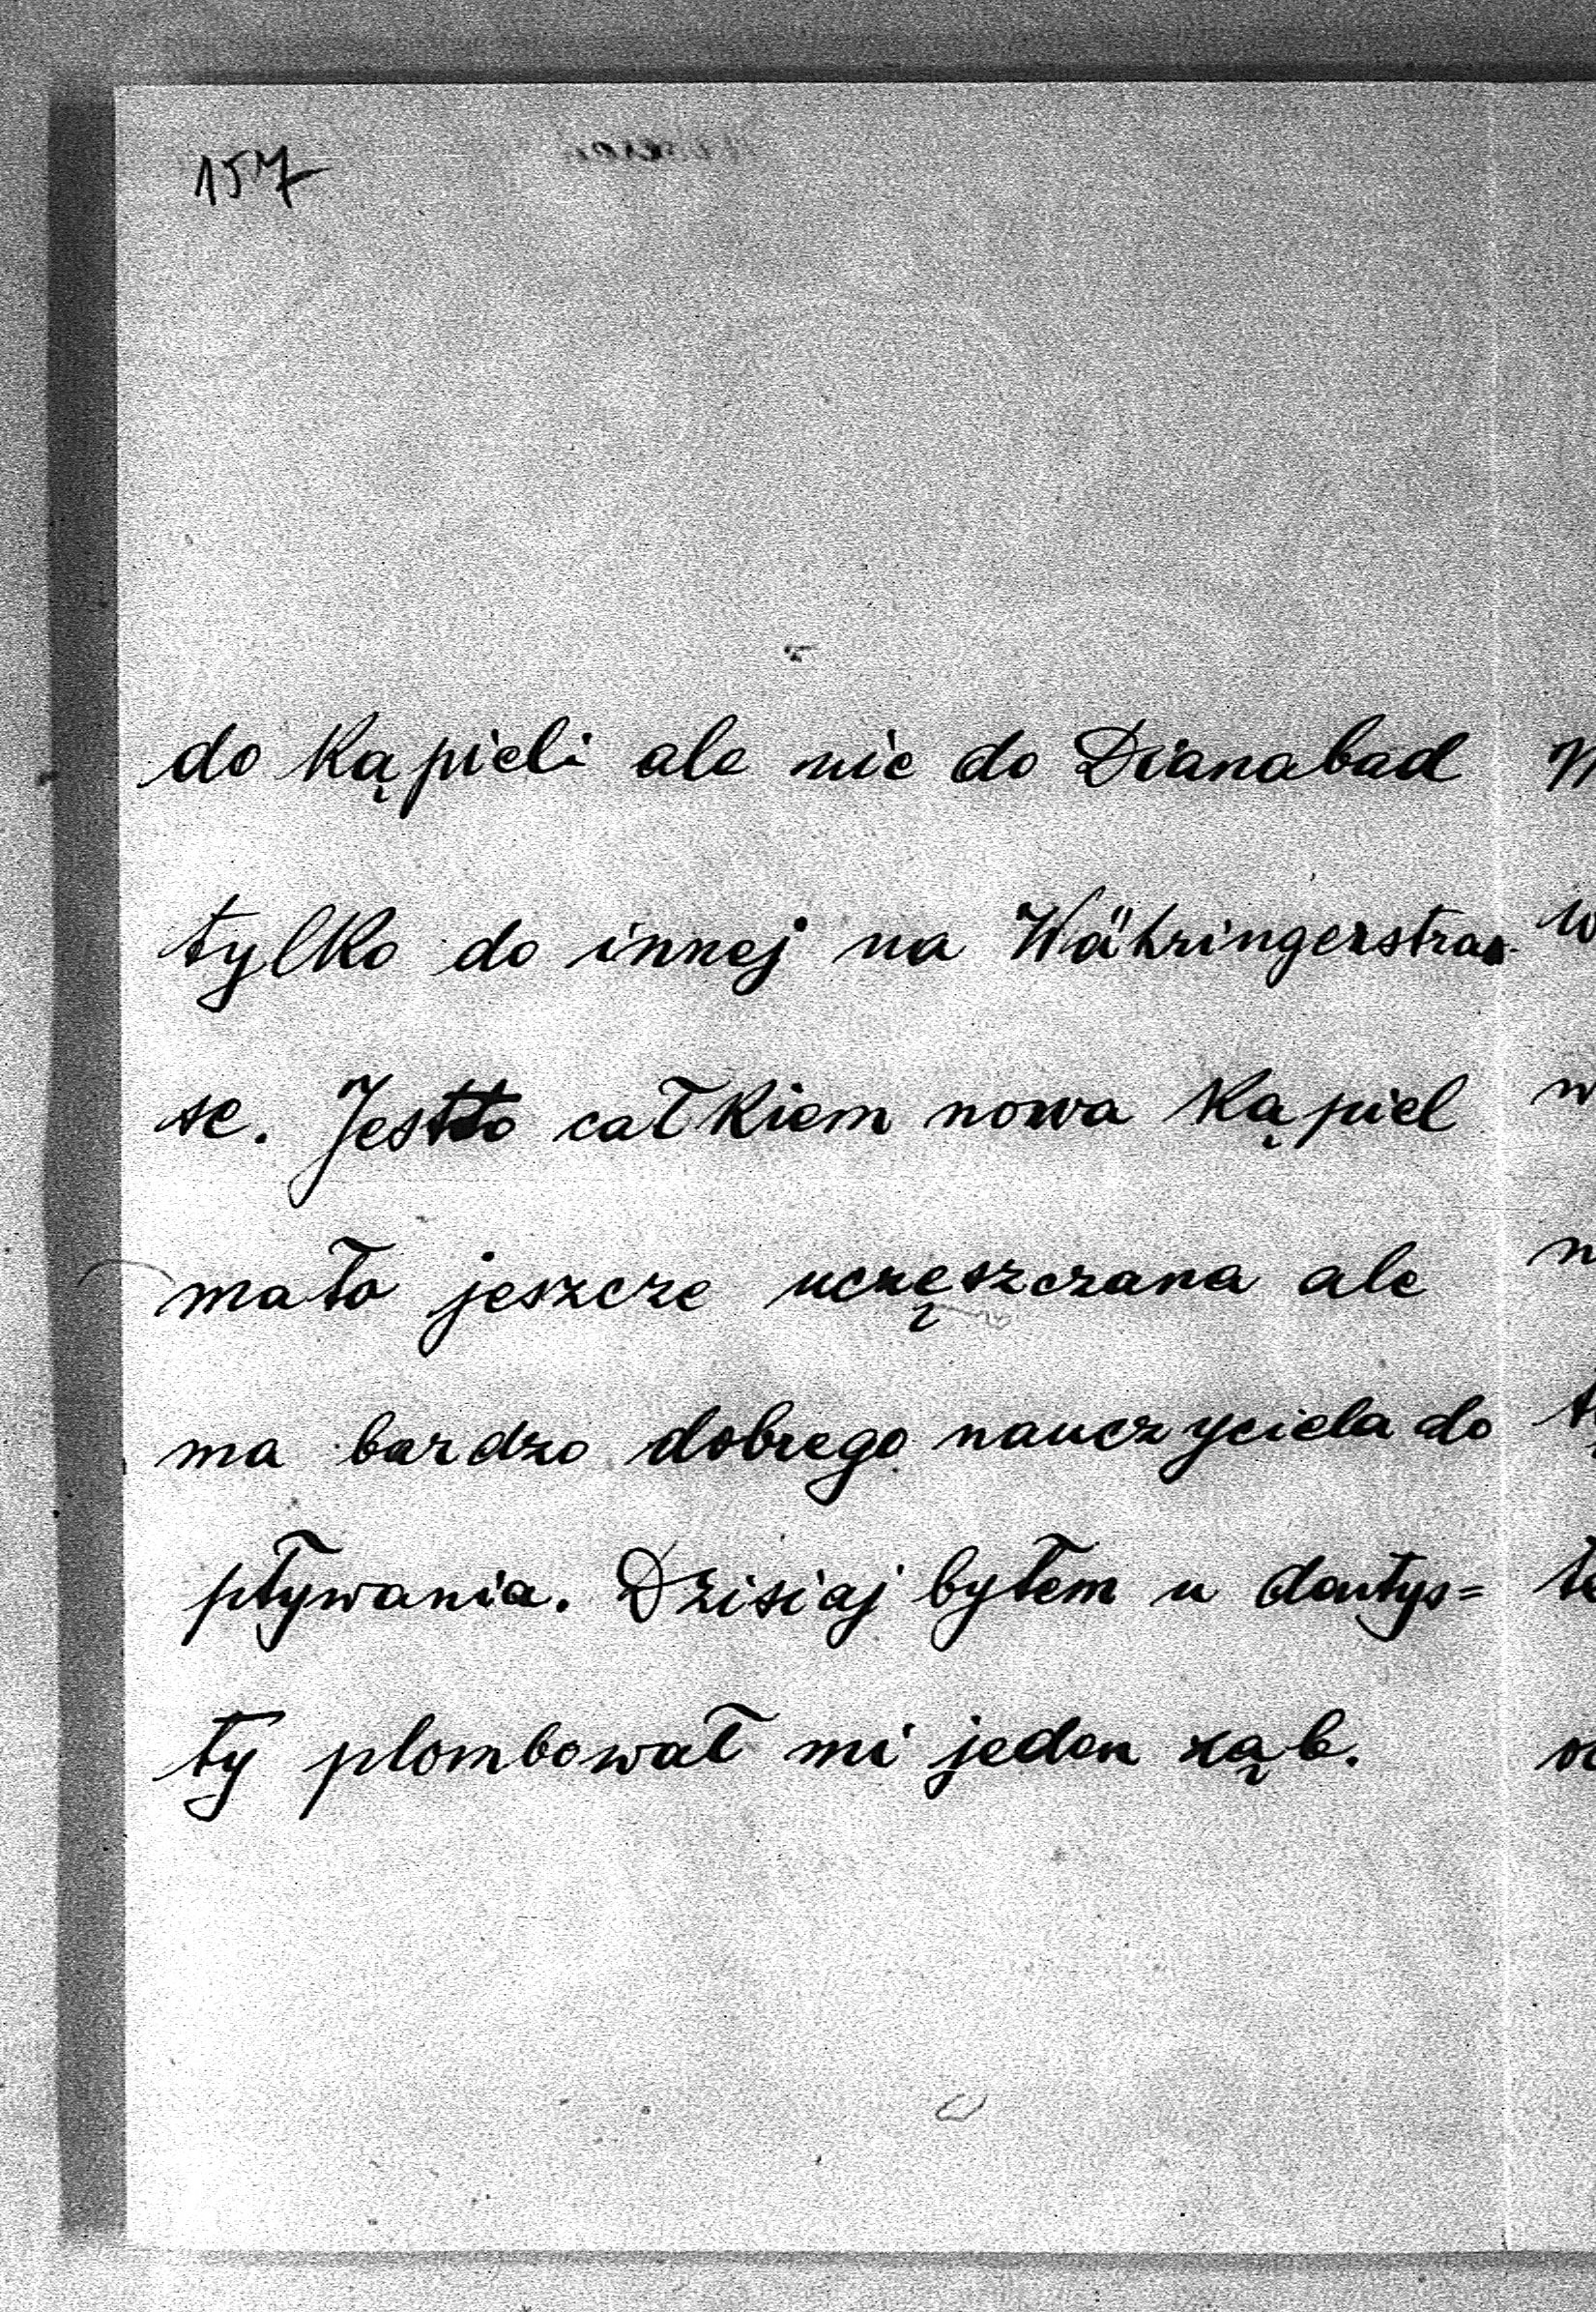 157
do kąpieli ale nie do Dianabad
tylko do innej na Währingerstras-
se. Jestto całkiem nowa kąpiel
mało jeszcze uczęszczana ale
ma bardzo dobrego nauczyciela do
pływania. Dzisiaj byłem u dentys=
ty plombował mi jeden ząb.